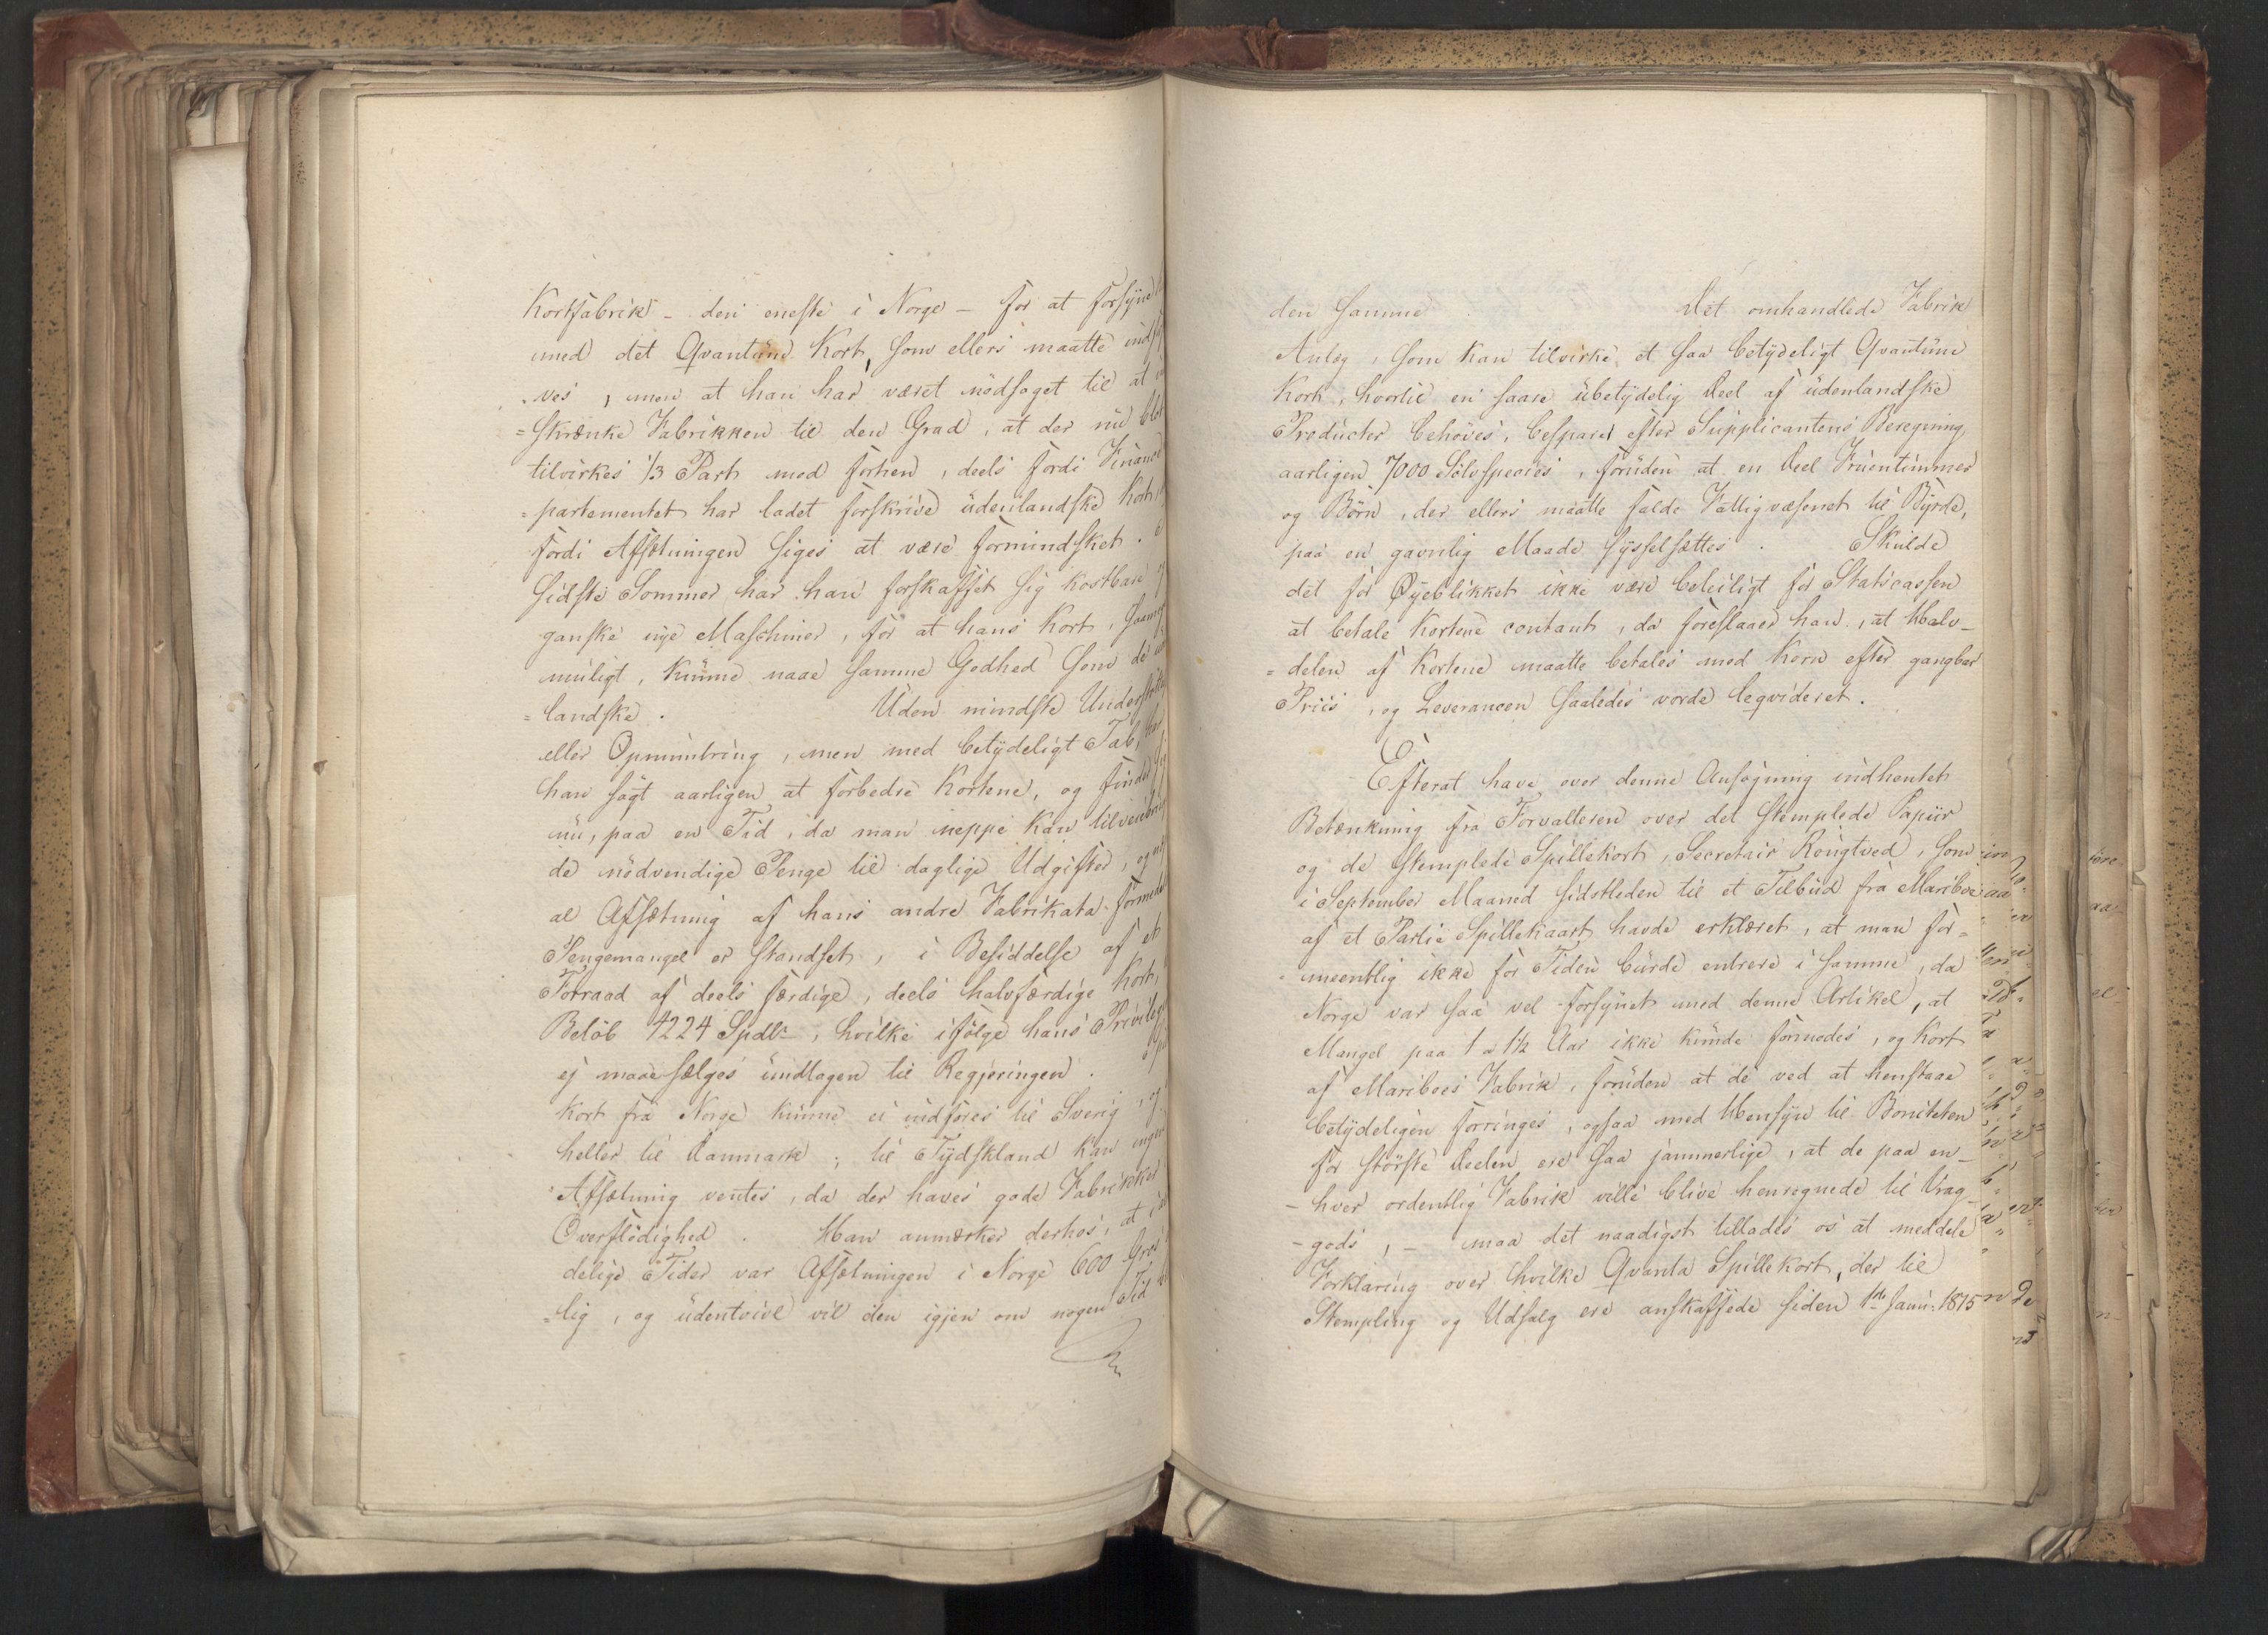 Kortfabrik – den eneste i Norge – for at forsyne
med det Qvantum Kort, som ellers maatte indfø
ves, men at han har været nödsaget til at
=skrænke Fabrikken til den Grad, at der nu blot
tilvirkes 1/3 Part mod forhen, deels fordi Finance
=partementet har ladet forskrive udenlandske Kort
fordi Afsætningen siges at være formindsket.
Sidste Sommer har han forskaffet sig kostbare
ganske nye Maschiner, for at hans Kort, saavidt
muligt, kunne naae samme Godhed som de
=landske. Uden mindste Understötte
eller Opmuntring, men med betydeligt Tab, har
han søgt aarligen at forbedre Kortene, og finder sig
nu, paa en Tid, da man neppe kan tilveiebring
de nödvendige Penge til daglige Udgifter, og
al Afsætning af hans andre Fabrikata formede
Pengemangel er standset, i Besiddelse af et
Forraad af deels færdige, deels halvfærdige Kort,
Beløb 4224 Spdlr, hvilke ifölge hans Privileg
ej maae sælges undtagen til Regjeringen.
Kort fra Norge kunne ei indføres til Sverig, ej
heller til Danmark; til Tydskland kan ingen
Afsætning ventes, da der haves gode Fabrikker
Overflödighed. Han anmærker derhos, at i
delige Tider var Afsætningen i Norge 600 Gros
=lig, og udentvivl vil den igjen om nogen Tid
den samme. Det omhandlede Fabrik
Anlæg, som kan tilvirke et saa betydeligt Qvantum
Kort, hvortil en saare ubetydelig Deel af udenlandske
Producter behøves, besparer efter Supplicantens Beregning
aarligen 7000 Sölvspecies, foruden at en Deel Fruentimmer
og Börn, der ellers maatte falde Fattigvæsenet til Byrde,
paa en gavnlig Maade sysselsættes. Skulde
det for Øyeblikket ikke være beleiligt for Statscassen
at betale Kortene contant, da foreslaaer han, at Halv–
=delen af Kortene maatte betales med Korn efter gangbar
Priis, og Leverancen saaledes vorde leqvideret.
Efterat have over denne Ansøgning indhentet
Betænkning fra Forvalteren over det stemplede Papiir
og de stemplede Spillekort, Secretair Rongtved, som
i September Maaned sidstleden til et Tilbud fra Mariboe
af et Partie Spillekaart havde erklæret, at man for=
=meentlig ikke for Tiden burde entrere i samme, da
Norge var saa vel forsynet med denne Artikel, at
Mangel paa 1 a 1½ Aar ikke kunde formodes, og Kort
af Mariboes Fabrik, foruden at de ved at henstaae
betydeligen forringes, ogsaa med Hensyn til Boniteten
for störste Deelen ere saa jammerlige, at de paa en–
–hver ordentlig Fabrik ville blive henregnede til Vrag–
–gods, – maa det naadigst tillades os at meddele
Forklaring over hvilke Qvanta Spillekort, der til
Stempling og Udsalg ere anskaffede siden 1de Janr: 1815